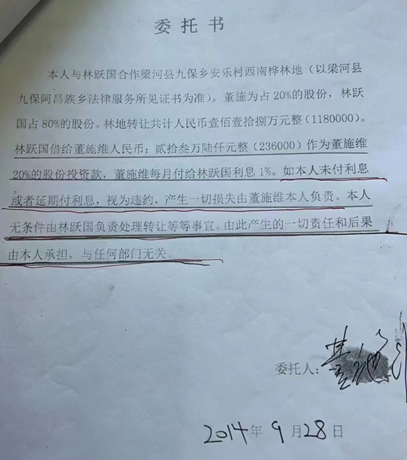 委托书
本人与林跃国合作梁河县九保乡安乐村西南桦林地（以梁河县
九保阿昌族乡法律服务所见证书为准）。董施为占20%的股份，林跃
国占80%的股份。林地转让共计人民币壹佰壹拾捌万元整（1180000）。
林跃国借给董施维人民币：贰拾叁万陆仟元整（236000）作为董施维
20%的股份投资款，董施维每月付给林跃国利息1%。如本人未付利息
或者延期付利息，视为违约，产生一切损失由董施维本人负责。本人
无条件由林跃国负责处理转让等等事宜。由此产生的一切责任和后果
由本人承担，与任何部门无关。
委托人：
2014年9月28日